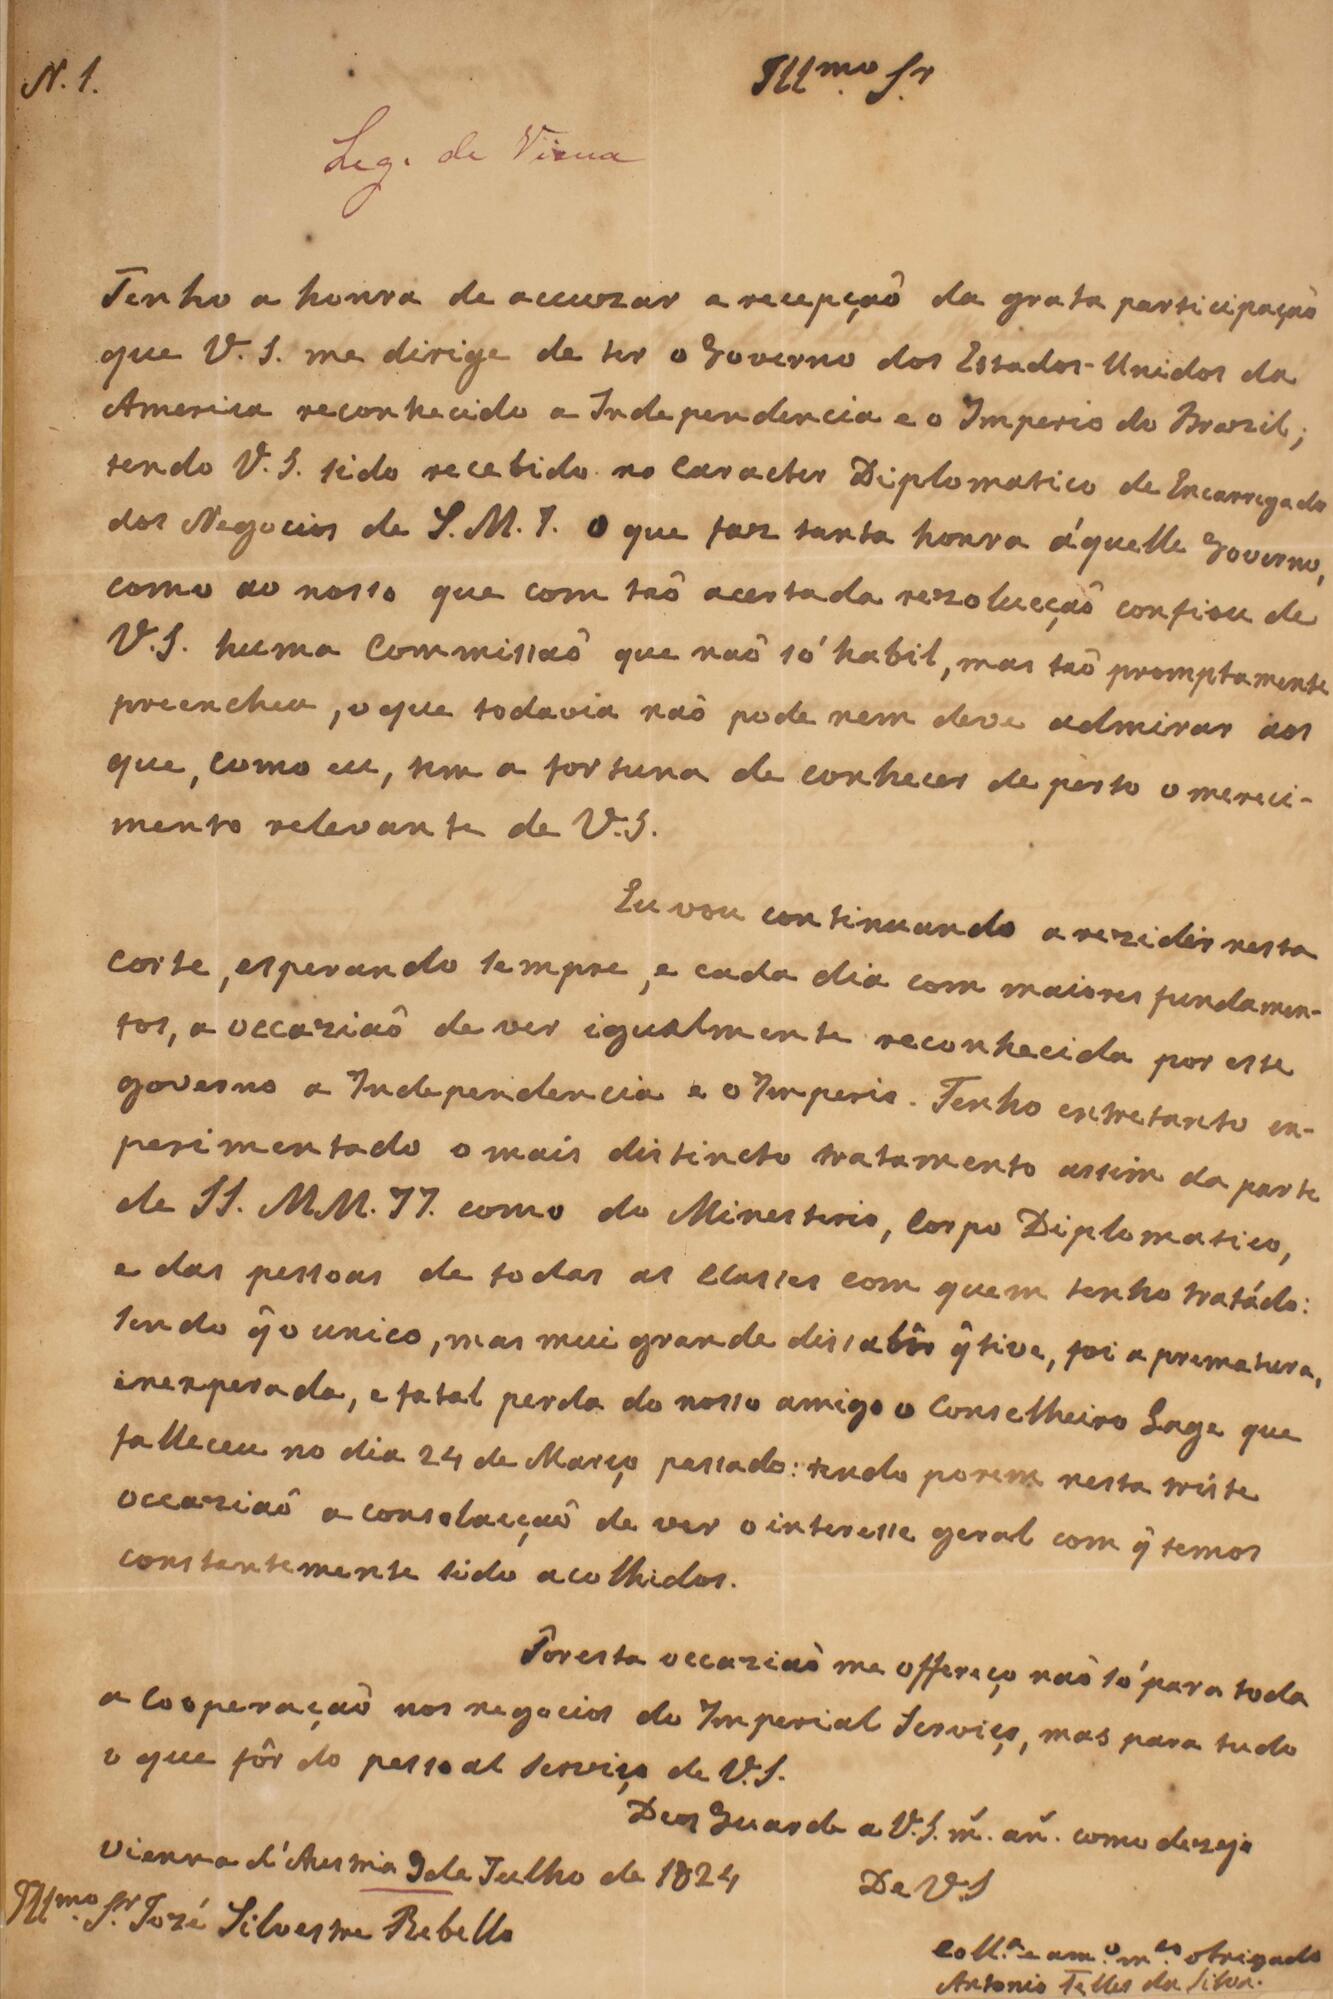 N. 1.
Illmo. Sr.
Leg. de Viena
Tenho a honra de accuzar a recepçaõ da grata participaçaõ
que V. S. me dirige de ter o Governo dos Estados-Unidos da
America reconhecido a Independencia e o Imperio do Brazil;
tendo V. S. sido recebido no Caracter Diplomatico de Encarregado
dos Negocios de S. M. I. O que faz tanta honra áquelle Governo,
como ao nosso que com taõ acertada rezolucçaõ confiou de
V. S. huma Commissaõ que naõ só habil, mas taõ promptamente
preencheu, o que todavia naõ pode nem deve admirar aos
que, como eu, tem a fortuna de conhecer de perto o mereci-
mento relevante de V. S.
Eu vou continuando a rezidir nesta
Corte, esperando sempre, e cada dia com maiores fundamen-
tos, a occaziaõ de ver igualmente reconhecida por este
governo a Independencia e o Imperio. Tenho entretanto ex-
perimentado o mais distincto tratamento assim da parte
de SS. MM. II. como do Ministerio, Corpo Diplomatico,
e das pessoas de todas as Classes com quem tenho tratádo:
sendo q̃ o unico, mas mui grande dissabôr q̃ tive, foi a prematura,
inexperada, e fatal perda do nosso amigo o Conselheiro Gage que
falleceu no dia 24 de Março passado: tendo porem nesta triste
occaziaõ a consolacçaõ de ver o interesse geral com q̃ temos
constantemente sido acolhidos.
Por esta occaziaõ me offereço naõ só para toda
a Cooperaçaõ nos negocios do Imperial Serviço, mas para tudo
o que fôr do pessoal serviço de V. S.
Deos Guarde a V. S. m.̃ an.̃ como dezeja
Vienna d'Austria 9 de Julho de 1824
De V. S
Illmo. Sr. Jozé Silvestre Rebello
Coll.ª e am.º m.to obrigado
Antonio Telles da Silva.